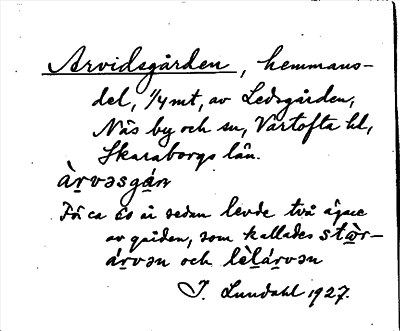 Arvidsgården, hemmans-
del, 1/4 mt, av Ledsgården,
Näs by och sn, Vartofta hd,
Skaraborgs län.
À̱rvəsgán
För ca 60 år sedan levde två ägare
av gården, som kallades stò̱r-
árvən och lèl̠árvən
J. Lundahl 1927.